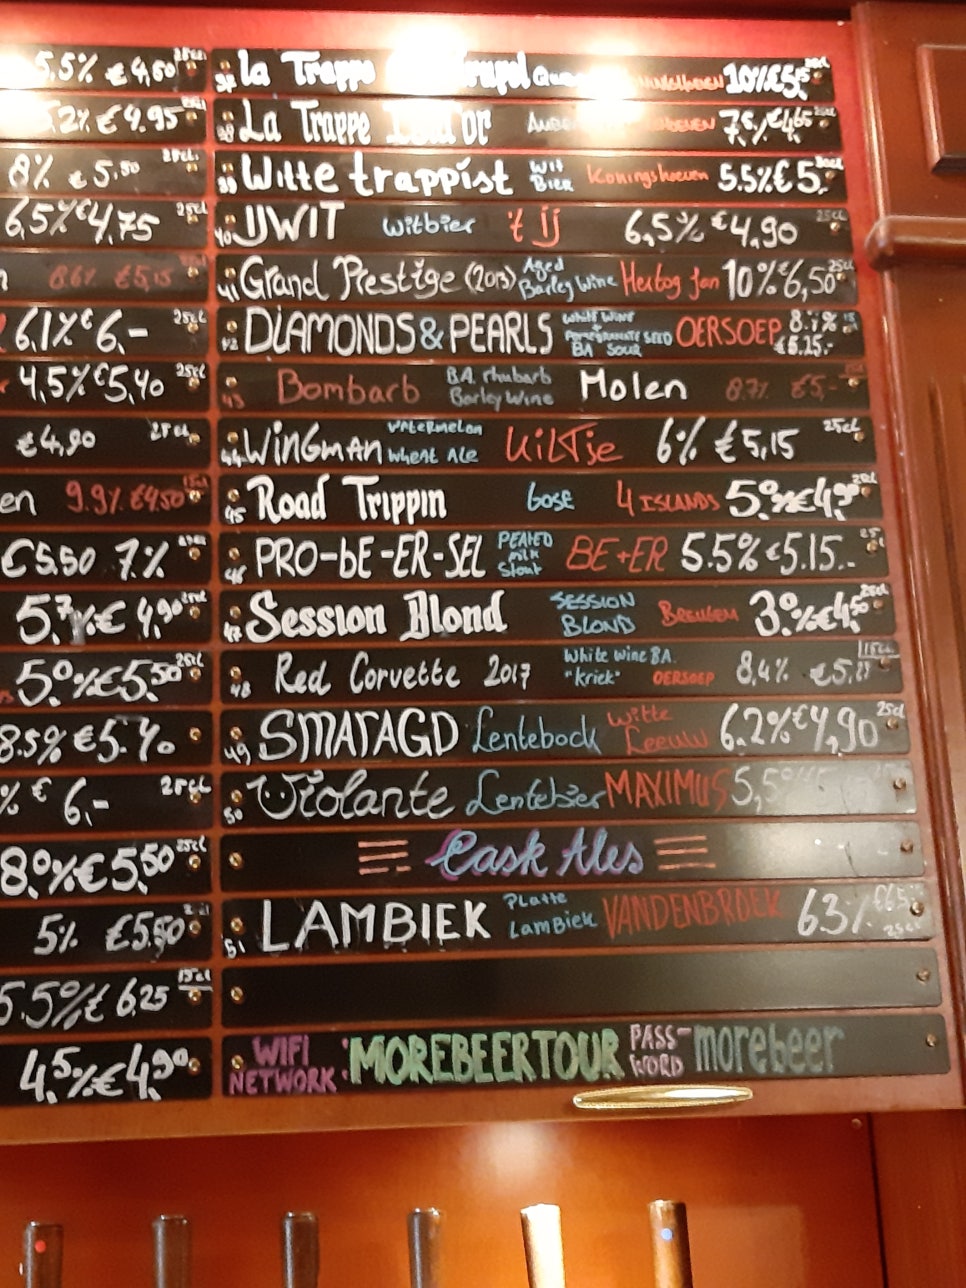 5.5% €4,60 25cl
.2% €4.95
8% €5.50 25cl.
6,5% €4,75 25cl
8.6% €5,15
6,1% €6,- 25cl
4,5% €5,40 25cl
€4,90 25cl
en 9.9% €4.50 15cl
€5.50 7.%
5.7% € 4,90
5.0% €5.50 25cl
8.5% €5.40
% € 6,- 25cl
8.0% €5.50 25cl
5% €5.50
5.5% € 6.25 15cl
4.5% €4.90
La Trappe 10% €5,15
38 La Trappe 7.5% €4,65
39 Witte trappist Wit Bier Koningshoeven 5.5% €5.-
40 IJWIT witbier 't ij 6,5% €4,90 25cl
41 Grand Prestige (2013) Aged Barley Wine Hertog Jan 10% €6,50 25cl
42 DIAMONDS & PEARLS white wine + Pomegranate seed BA Sour OERSOEP €5.25.-
43 Bombarb B.A. rhubarb Barley Wine Molen 8.7% €5,-
44 WINGMAN watermelon wheat ale UILTJE 6% €5,15 25cl
45 Road Trippin Gose 4 ISLANDS 5.0% €4.90
46 PRO-bE-ER-SEL PEATED milk Stout BE+ER 5.5% €5.15.-
47 Session Blond SESSION BLOND 3.0% €4,50
48 Red Corvette 2017 White wine B.A. "kriek" OERSOEP 8,4% 15cl
49 SMARAGD Lentebock Witte Leeuw 6.2% €4,90 25cl
50 Violante Lentebier MAXIMUS 5,5%
Cask Ales
51 LAMBIEK Platte Lambiek VANDENBROEK 6.3% 25cl
WIFI NETWORK: MOREBEERTOUR PASS-WORD morebeer